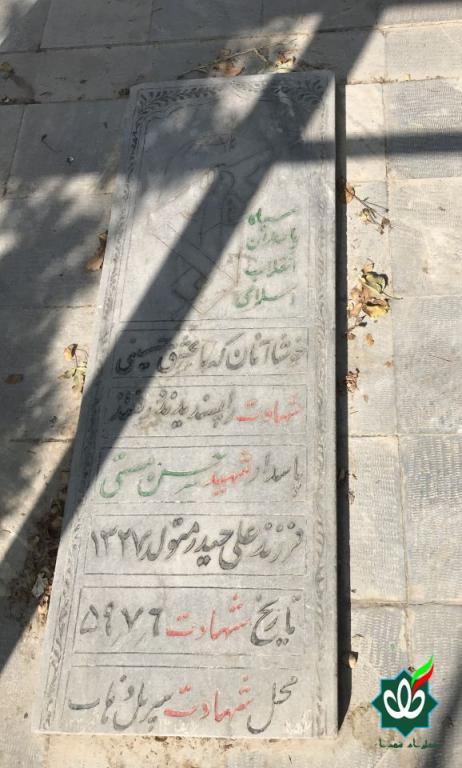 سپاه
پاسداران
انقلاب
اسلامی
خوشا آنان که با عشق حسینی
شهادت را پسندیدند و رفتند
پاسدار شهید حسن
فرزند علی حیدر متولد ۱۳۲۷
تاریخ شهادت ۵۹۷۶
محل شهادت سرپل ذهاب